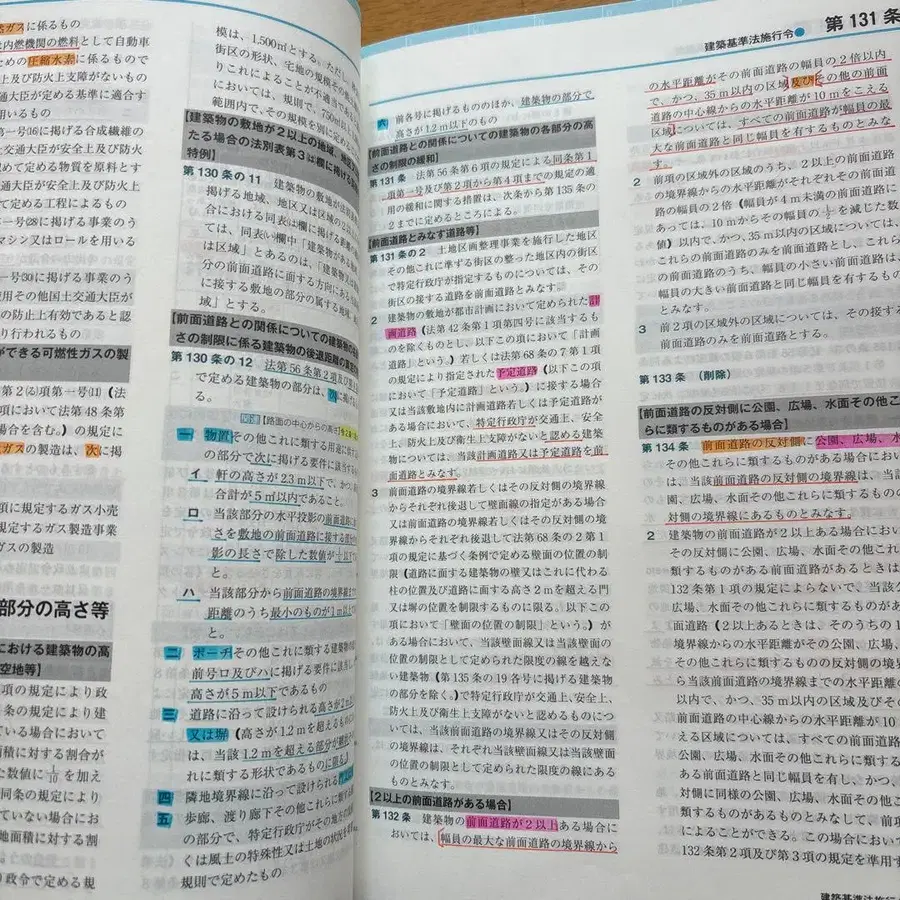 然ガスに係るもの
内燃機関の燃料として自動車
ための圧縮水素に係るもので
上及び防火上支障がないもの
通大臣が定める基準に適合す
いるもの
第一号⒃に掲げる合成繊維の
交通大臣が安全上及び防火上
めて定める物質を原料とす
通大臣が安全上及び防火上
て定める工程によるもの
一号㉘に掲げる事業のう
マシン又はロールを用いる
一号㉚に掲げる事業のう
使用その他国土交通大臣が
の防止上有効であると認
り行われるもの
ができる可燃性ガスの製
第2(る)項第一号⑾(法
項において法第48条第
合を含む。)の規定に
ガスの製造は、次に掲
項に規定するガス小売
規定するガス製造事業
ガスの製造
部分の高さ等
における建築物の高
空地等】
項の規定により政
条の規定により建
ている場合において
面積に対する割合が
た数値に1/10を加え
同条の規定により
ていない場合にお
地面積に対する割
政令で定める規
模は、1,500㎡とする。ただし、
街区の形状、宅地の規模その他
りこれによることが不適当である
においては、規則で、750㎡以上
範囲内で、その規模を別に定める
【建築物の敷地が2以上の地域、地区
たる場合の法別表第3は欄に掲げる
特例】
第130条の11 建築物の敷地が法別表
掲げる地域、地区又は区域の2以上
合における同表は欄に掲げる距離の
ては、同表い欄中「建築物がある
は区域」とあるのは、「建築物又は
分の前面道路に面する方向にある
に接する敷地の部分の属する地域、
域」とする。
【前面道路との関係についての建築物の
さの制限に係る建築物の後退距離の算定の
第130条の12 法第56条第2項及び
で定める建築物の部分は、次に掲げ
る。
【路面の中心からの高さ】
一 物置その他これに類する用途に供する
の部分で次に掲げる要件に該当する
イ 軒の高さが2.3m以下で、かつ、
合計が5㎡以内であること。
ロ 当該部分の水平投影の前面道路に
さを敷地の前面道路に接する部分の
影の長さで除した数値が
と。
ハ 当該部分から前面道路の境界線まで
距離のうち最小のものが1m以上
と。
二 ポーチその他これに類する建築物の
前号ロ及びハに掲げる要件に該当し
高さが5m以下であるもの
三 道路に沿って設けられる高さが2m
又は塀(高さが1.2mを超えるもの
は、当該1.2mを超える部分が網状
れに類する形状であるものに限る。)
四 隣地境界線に沿って設けられる
五 歩廊、渡り廊下その他これらに類する
の部分で、特定行政庁がその地方の
くは風土の特殊性又は土地の状況を
規則で定めたもの
建築基準法施行令● 第131条
六 前各号に掲げるもののほか、建築物の部分で
高さが1.2m以下のもの
【前面道路との関係についての建築物の各部分の高
さの制限の緩和】
第131条 法第56条第6項の規定による同条第1
項第一号及び第2項から第4項までの規定の適
用の緩和に関する措置は、次条から第135条の
2までに定めるところによる。
【前面道路とみなす道路等】
第131条の2 土地区画整理事業を施行した地区
その他これに準ずる街区の整った地区内の街区
で特定行政庁が指定するものについては、その
街区の接する道路を前面道路とみなす。
2 建築物の敷地が都市計画において定められた計
画道路(法第42条第1項第四号に該当するも
のを除くものとし、以下この項において「計画
道路」という。)若しくは法第68条の7第1項
の規定により指定された予定道路(以下この項
において「予定道路」という。)に接する場合
又は当該敷地内に計画道路若しくは予定道路が
ある場合において、特定行政庁が交通上、安全
上、防火上及び衛生上支障がないと認める建築
物については、当該計画道路又は予定道路を前
面道路とみなす。
3 前面道路の境界線若しくはその反対側の境界線
からそれぞれ後退して壁面線の指定がある場合
又は前面道路の境界線若しくはその反対側の境
界線からそれぞれ後退して法第68条の2第1
項の規定に基づく条例で定める壁面の位置の制
限(道路に面する建築物の壁又はこれに代わる
柱の位置及び道路に面する高さ2mを超える門
又は塀の位置を制限するものに限る。以下この
項において「壁面の位置の制限」という。)が
ある場合において、当該壁面線又は当該壁面の
位置の制限として定められた限度の線を越えな
い建築物(第135条の19各号に掲げる建築物
の部分を除く。)で特定行政庁が交通上、安全上、
防火上及び衛生上支障がないと認めるものにつ
いては、当該前面道路の境界線又はその反対側
の境界線は、それぞれ当該壁面線又は当該壁面
の位置の制限として定められた限度の線にある
ものとみなす。
【2以上の前面道路がある場合】
第132条 建築物の前面道路が2以上ある場合に
おいては、幅員の最大な前面道路の境界線から
の水平距離がその前面道路の幅員の2倍以内
で、かつ、35m以内の区域及びその他の前面
道路の中心線からの水平距離が10mをこえる
区域については、すべての前面道路が幅員の最
大な前面道路と同じ幅員を有するものとみな
す。
2 前項の区域外の区域のうち、2以上の前面道路
の境界線からの水平距離がそれぞれその前面道
路の幅員の2倍(幅員が4m未満の前面道路に
あつては、10mからその幅員の1/2を減じた数
値)以内で、かつ、35m以内の区域については、
これらの前面道路のみを前面道路とし、これら
の前面道路のうち、幅員の小さい前面道路は、
幅員の大きい前面道路と同じ幅員を有するもの
とみなす。
3 前2項の区域外の区域については、その接する
前面道路のみを前面道路とする。
第133条 (削除)
【前面道路の反対側に公園、広場、水面その他こ
らに類するものがある場合】
第134条 前面道路の反対側に公園、広場、水
その他これらに類するものがある場合において
は、当該前面道路の反対側の境界線は、当該
園、広場、水面その他これらに類するものの
対側の境界線にあるものとみなす。
2 建築物の前面道路が2以上ある場合において
その反対側に公園、広場、水面その他これらに
類するものがある前面道路があるときは
132条第1項の規定によらないで、当該公
広場、水面その他これらに類するものがあ
路(2以上あるときは、そのうちの1
境界線からの水平距離がその公園、広場、
その他これらに類するものの反対側の境界線か
ら当該前面道路の境界線までの水平距離の
以内で、かつ、35m以内の区域及びその
道路の中心線からの水平距離が10
える区域については、すべての前面道路を
公園、広場、水面その他これらに類するもの
ある前面道路と同じ幅員を有し、かつ、
対側に同様の公園、広場、水面その他
類するものがあるものとみなして、前項
によることができる。この場合におい
132条第2項及び第3項の規定を準用す
建築基準法施行